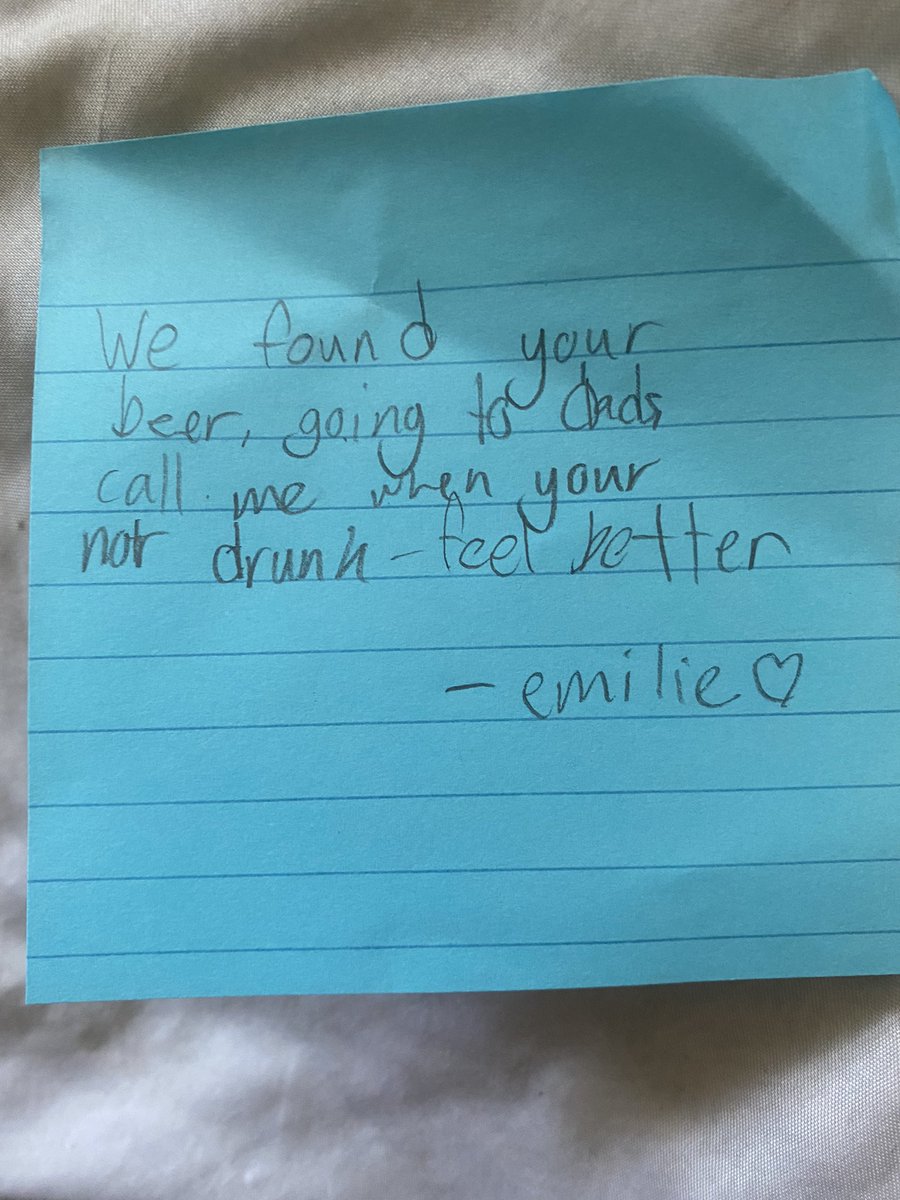 We found your
beer, going to dads
call me when your
not drunk - feel better
- emilie♡